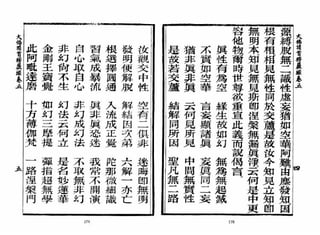 大佛頂首楞嚴經卷五 四
源縛脫無二識性虛妄猶如空華阿難由塵發知因
根有相相見無性同於交蘆是故汝今知見立知即
無明本知見無見斯即涅槃無漏真淨云何是中更
容他物爾時世尊欲重宣此義而說偈言
眞性有為空 緣生故如幻 無為無起滅
不實如空華 言妄顯諸眞 妄眞同二妄
猶非眞非眞 云何見所見 中間無實性
是故若交蘆 結解同所因 聖凡無二路
汝觀交中性 空有二俱非 迷晦即無明
發明便解脫 解結因次第 六解一亦亡
根選擇圓通 入流成正覺 陀那微細識
習氣成暴流 眞非眞恐迷 我常不開演
自心取自心 非幻成幻法 不取無非幻
非幻尚不生 幻法云何立 是名妙蓮華
金剛王寶覺 如幻三摩提 彈指超無學
此阿毗達磨 十方薄伽梵 一路涅槃門
大佛頂首楞嚴經卷五 五